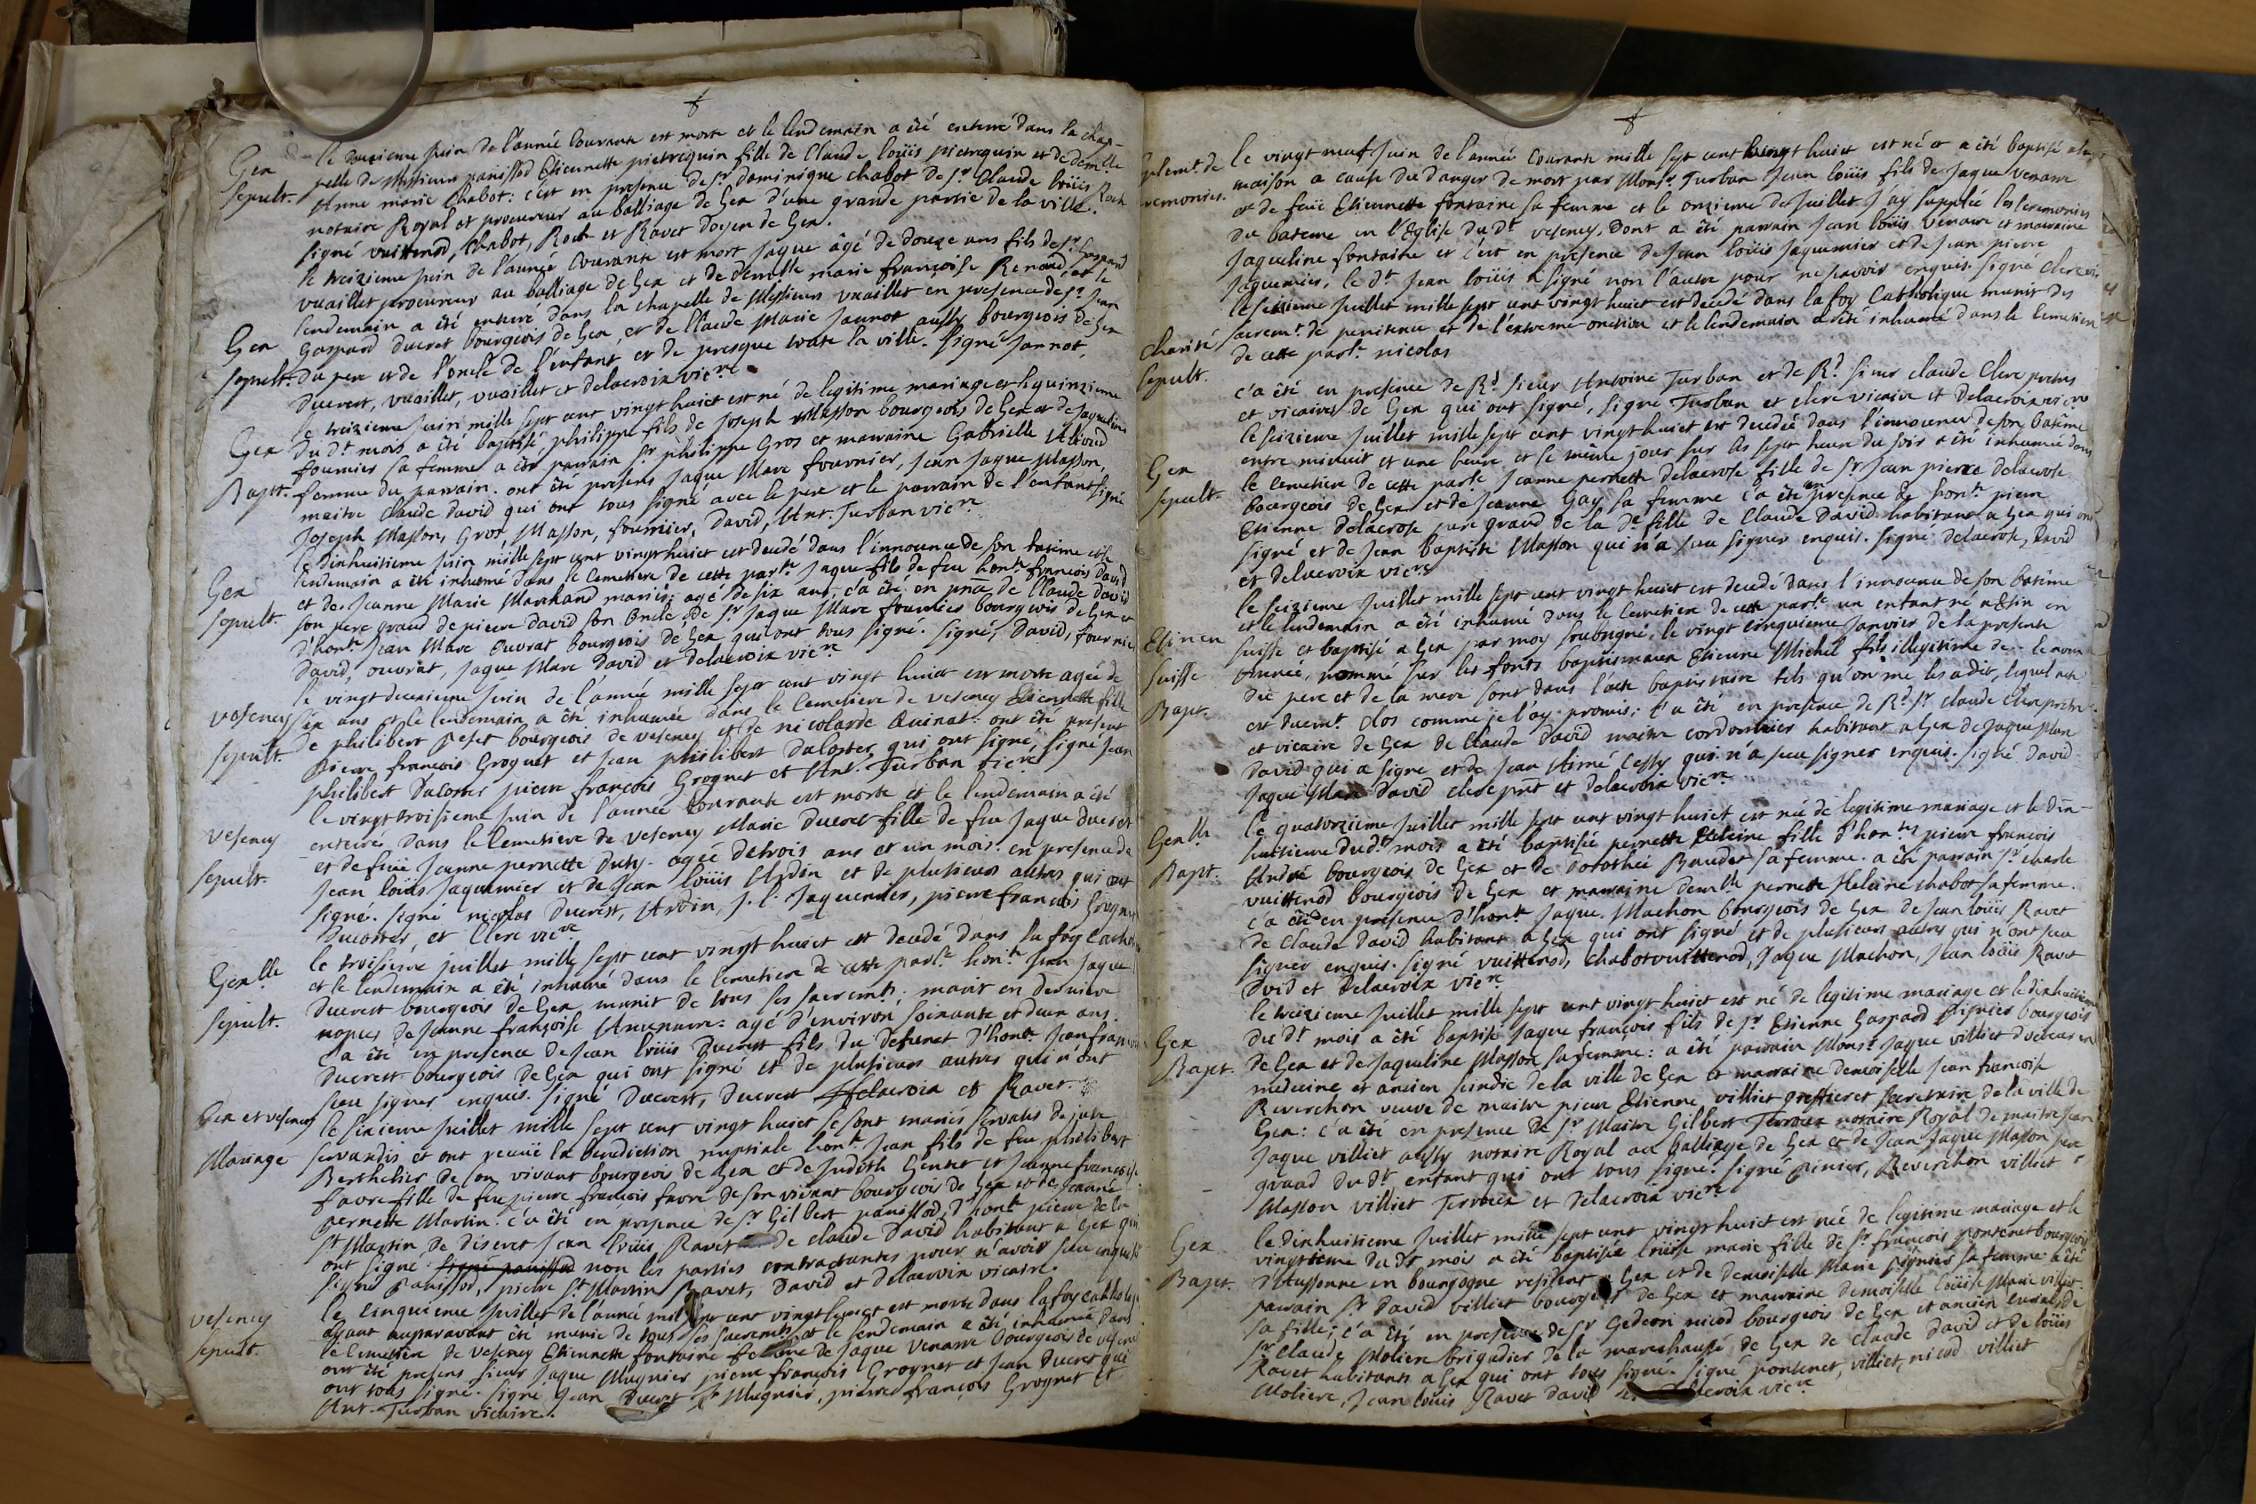 Gex
Sepult.
le douzieme juin de l'année Courante est morte et le lendemain a été enterré dans la chap-
pelle de Messieurs panissod Etiennette pietrequin fille de Claude loüis pietrequin et de demlle
Anne marie Chabot: c'est en presence de Sr dominique chabot de Sr Claude loüis Roch
notaire Royal et procureur au balliage de Gex d'une grande partie de la ville.
signé vuittenod, Chabot, Roch et Ravet doyen de Gex.
Gex
sepult.
le treizieme juin de l'année Courante est mort jaque âgé de douze ans fils de Sr gaspard
vuaillet procureur au balliage de Gex et de demlle marie françoise Renaud et le
lendemain a été enterré dans la chapelle de Messieurs vuaillet en presence de Sr jean
Gaspard ducret bourgeois de Gex, et de Claude Marie Jannot aussy bourgeois de Gex
du pere et de l'oncle de l'enfant et de presque toute la ville. signé Jannot,
ducrest, vuaillet, vuaillet et delacroix vicre
Gex
Bapt.
le treizieme juin mille sept cent vingt huict est né de legitime mariage et le quinzieme
du dt mois a été baptisé philippe fils de joseph Masson bourgeois de Gex et de jaqueline
fournier sa femme a été parrain Sr philippe Gros et marraine Gabrielle
femme du parrain. ont été presens jaque Marc fournier, jean jaque Masson,
maitre Claude david qui ont tous signé avec le pere et le parrain de l'enfant signé
Joseph Masson, Gros, Masson, fournier, David, Ant. Turban vicre
Gex
sepult.
le dixhuitieme juin mille sept cent vingt huict est decedé dans l'innocence de son batême et le
lendemain a été inhumé dans le Cemetiere de cette parse jaque fils de feu hont françois david
et de jeanne Marie Marchand mariés; agé de six ans, c'a été en pnce de Claude david
son pere grand de pierre david son oncle, de Sr jaque Marc fournier bourgeois de Gex et
d'hont jean Marc ouvrat bourgeois de Gex qui ont tous signé. signé, David, fournier
David, ouvrat, jaque Marc David et delacroix vicre
vesency
sepult.
le vingt deuxieme juin de l'année mille sept cent vingt huict est morte agée de
six ans et le lendemain a été inhumée dans le Cemetiere de vesency Etiennette fille
de philibert peset bourgeois de vesency et de nicolarde Quinat: ont été present
pierre françois Grognet et jean philibert Dacoster qui ont signé; signé jean
philibert Dacoster pierre françois Grognet et Ant. Turban vicre
vesency
sepult.
le vingt troisieme juin de l'année Courante est morte et le lendemain a été
enterrée dans le Cemetiere de vesency Marie ducret fille de feu jaque ducret
et de feüe jeanne pernette duty. agée de trois ans et un mois. en presence de
jean loüis jaquemier et de jean loüis Ardin et de plusieurs autres qui ont
signé. signé nicolas ducrest, Ardin, j. l. jaquemier, pierre francois Grognet
Ducoster, et Clerc vicre
Gexlle
sepult.
le troisieme juillet mille sept cent vingt huict est decedé dans la foy Catho
et le lendemain a été inhumé dans le Cemetiere de cette parse hont jean jaque
ducrest bourgeois de Gex munit de tous ses sacremts. mary en derniere
nopces de jeanne françoise : agé d'environ soixante et deux ans.
c'a été en presence de jean loüis Ducrest fils du defunct d'hont jean franç
ducrest bourgeois de Gex qui ont signé et de plusieurs autres qui n'ont
seu signer enquis. signé Ducrest, ducrest delacroix et Ravet
Gex et vesency
Mariage
le sixieme juillet mille sept cent vingt huict se sont mariés servatis de jure
servandis et ont receüe la benediction nuptiale hont jean fils de feu philibert
Berthelier de son vivant bourgeois de Gex et de judith Gentet et jeanne françoise
favre fille de feu pierre françois favre de son vivant bourgeois de Gex et de jeanne
pernette Martin. c'a été en presence de Sr Gilbert panissod, d'hont pierre de la
St Martin de diseret jean loüis Ravet de claude David habitant a Gex qui
ont signe. signé panissod non les parties contractantes pour n'avoir seu enquis
signé panissod, pierre St Martin Ravet, David et delacroix vicaire.
vesency
sepult.
le cinquieme juillet de l'année mil sept cent vingt huict est morte dans la foy catholi
ayant auparavant été munie de tous ses sacremts et le lendemain a été inhumée dans
le Cemetiere de vesency Etiennette fontaine femme de jaque venarre bourgeois de vesency
ont été presens sieur jaque Mugnier pierre françois Grognet et jean ducret qui
ont tous signé. signé jean Ducret Mugnier, pierre françois Grognet et
Ant. Turban vicaire.
suplemt. de
ceremonies.
le vingt neuf juin de l'année Courante mille sept cent vingt huict est né et a été baptisé a la
maison a cause du danger de mort par Monsr Turban jean loüis fils de jaque venarre
et de feüe Etiennette fontaine sa femme et le onzieme de juillet j'ay supplée les ceremonies
du bateme en l'Eglise du dt vesency. dont a été parrain jean loüis venarre et marraine
jaqueline fontaine et c'est en presence de jean loüis jaquemier et de jean pierre
jaquemier. le dt jean loüis a signé non l'autre pour ne savoir enquis. signé clerc
Charité
Sepult.
le seizieme juillet mille sept cent vingt huict est decedé dans la foy Catholique munis des
sacremts de penitence et de l'extreme-onction et le lendemain a été inhumé dans le Cemetiere
de cette parse nicolas
c'a été en presence de Rd sieur Antoine Turban et de Rd sieur claude Clerc pretres
et vicaires de Gex qui ont signé, signé Turban et clerc vicaire et Delacroix vicre
Gex
sepult.
le seizieme juillet mille sept cent vingt huict est decedée dans l'innocence de son batême
entre minuit et une heure et le même jour sur les sept heures du soir a été inhumée dans
le Cemetiere de cette parse jeanne pernette delacrose fille de Sr jean pierre delacrose
bourgeois de Gex et de jeanne Gay sa femme c'a été en presence de hont pierre
Etienne delacrose pere grand de la de fille de Claude David habitant a Gex qui ont
signé et de jean baptiste Masson qui n'a sceu signer enquis. signé delacrose, David
et delacroix vicre
Etin en
suisse
Bapt.
le seizieme juillet mille sept cent vingt huict est decedé dans l'innocence de son batême
et le lendemain a été inhumé dans le Cemetiere de cette parse un enfant né a Etin en
suisse et baptisé a Gex par moy soubsigné, le vingt cinquieme janvier de la presente
année, nommé sur les fonts baptismaux Etienne Michel fils illegitime de. le nom
du pere et de la mere sont dans l'acte baptistaire tels qu'on me les a dit, lequel acte
est ducmt clos comme je l'ay promis; c'a été en presence de Rd Sr claude Clerc pretre
et vicaire de Gex de Claude david maitre cordonnier habitant a Gex de jaque Marc
David qui a signe et de jean Aimé qui n'a sceu signer enquis. signé David
jaque Marc David clerc prêt et delacroix vicre
Gexlle
Bapt.
le quatorzieme juillet mille sept cent vingt huict est née de legitime mariage et le dix-
huitieme du dt mois a été baptisée pernette Heleine fille d'hont pierre françois
André bourgeois de Gex et de dorothée Baudet sa femme. a été parrain Sr charle
vuittenod bourgeois de Gex et marraine demlle pernette Heleine chabot sa femme.
c'a été en presence d'hont jaque Machon bourgeois de Gex de jean loüis Ravet
de claude David habitans a Gex qui ont signé et de plusieurs autres qui n'ont seu
signer enquis. signé vuittenod, chabot vuittenod, jaque Machon, jean loüis Ravet
dvid et Delacroix vicre
Gex
Bapt.
le treizieme juillet mille sept cent vingt huict est né de legitime mariage et le dixhuitieme
du dt mois a été baptisé jaque françois fils de Sr Etienne Gaspard pinier bourgeois
de Gex et de jaqueline Masson sa femme: a été parrain Monsr jaque villiet docteur en
medecine et ancien scindic de la ville de Gex et marraine demoiselle jean françoise
Reverchon veuve de maitre pierre Etienne villiet greffier et secretaire de la ville de
Gex: c'a été en presence de Sr Maitre Gilbert Terroux notaire Royal de maitre jean
jaque villiet aussy notaire Royal au balliage de Gex et de jean jaque Masson pere
grand du dt enfant qui ont tous signé. signé pinier, Reverchon villiet
Masson villiet Terroux et delacroix vicre
Gex
Bapt.
le dixhuitieme juillet mille sept cent vingt huict est née de legitime mariage et le
vingtieme du dt mois a été baptisée loüise marie fille de Sr françois pontenet bourgeois
d'Aussonne en bourgogne resident a Gex et de demoiselle Marie pignier sa femme a été
parrain Sr David villiet bourgeois de Gex et marraine demoiselle loüise Marie villiet
sa fille; c'a été en presence de Sr Gedeon nicod bourgeois de Gex et ancien
Sr Claude Moliere brigadier de la marechaussé de Gex de claude david et de loüis
Ravet habitants a Gex qui ont tous signé. signé pontenet, villiet, nicod villiet
Moliere, jean louis Ravet david et delacroix vicre